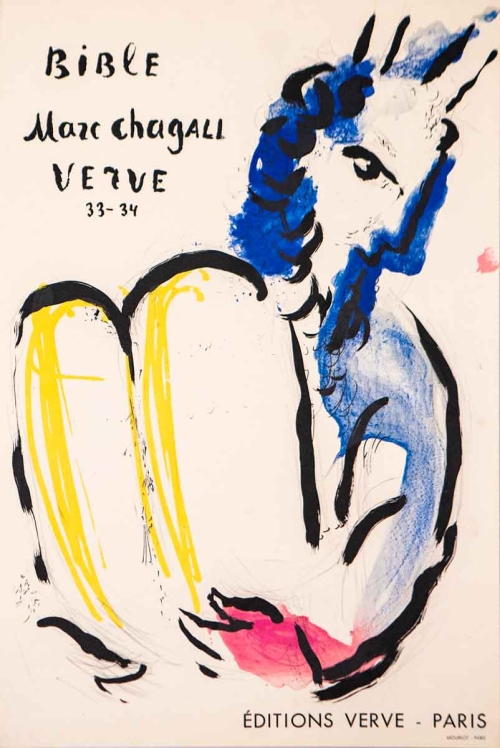 BiBlE
Marc chagall
VERVE
33-34
ÉDITIONS VERVE - PARIS
MOURLOT - PARIS